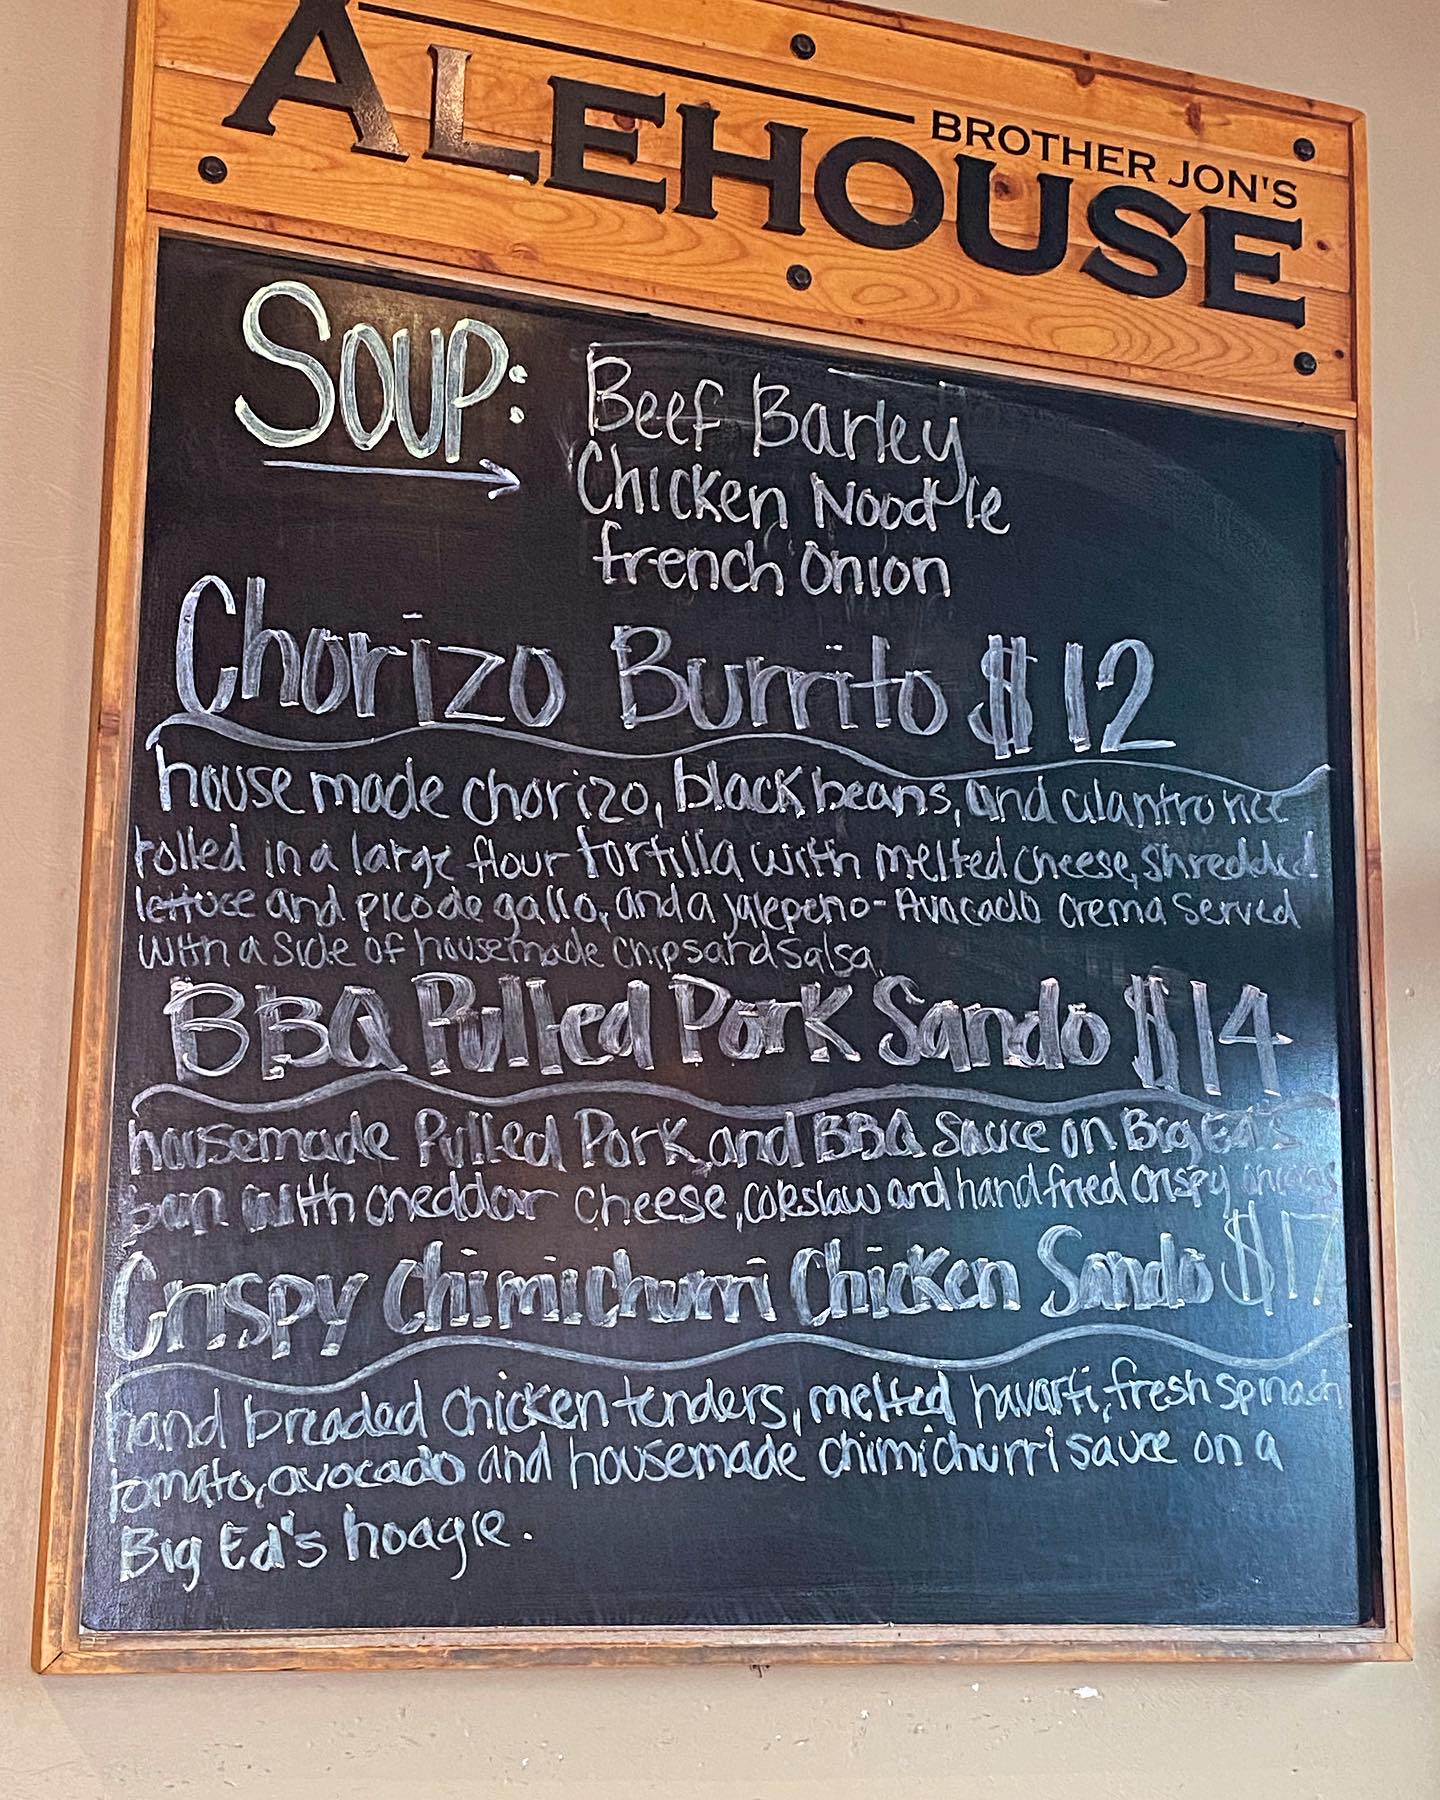 BROTHER JON'S
ALEHOUSE
Soup:
Beef Barley
Chicken Noodle
french Onion
Chorizo Burrito $12
house made chorizo, black beans, and cilantro rice
rolled in a large flour tortilla with melted cheese, shredded
lettuce and pico de gallo, and a jalepeno-Avocado crema served
with a side of housemade chips and salsa.
BBQ Pulled Pork Sando $14
housemade Pulled Pork and BBQ Sauce on Big Ed's
bun with cheddar cheese, coleslaw and hand fried crispy onions
Crispy Chimichurri Chicken Sando $17
hand breaded chicken tenders, melted havarti, fresh spinach
tomato, avocado and housemade chimichurri sauce on a
Big Ed's hoagie.